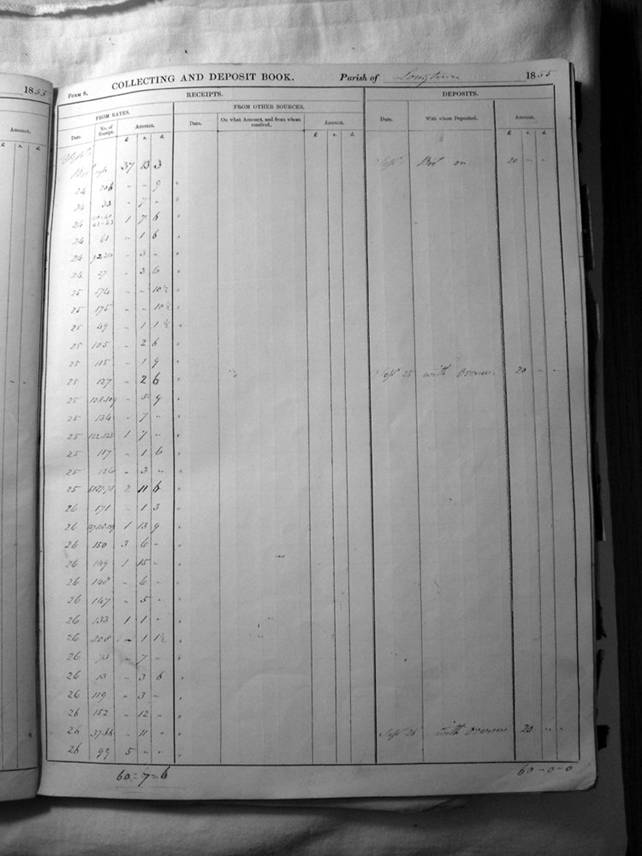 1855
Amount.
£ s. d.
Form 8. COLLECTING AND DEPOSIT BOOK. Parish of 1855
RECEIPTS. DEPOSITS.
FROM RATES. FROM OTHER SOURCES.
Date. No. of Receipt. Amount. Date. On what Account, and from whom received. Amount. Date. With whom Deposited. Amount.
£ s. d. £ s. d. £ s. d.
37 13 3 Sept 20 - -
24 206 - - 9
24 33 - 7 -
24 1 7 6
24 61 - 1 6
24 - 3 -
24 27 - 3 6
25 174 - - 10½
25 175 - - 10½
25 49 - 1 1½
25 105 - 2 6
25 115 - 1 9
25 127 - 2 6 Sept 25 with Overseer 20 - -
25 - 5 9
25 124 - 7 -
25 122.123 1 7 -
25 117 - 1 6
25 126 - 3 -
25 2 11 6
26 171 - 1 3
26 1 13 9
26 150 3 6 -
26 149 1 15 -
26 148 - 6 -
26 147 - 5 -
26 133 1 1 -
26 208 - 1 1½
26 73 - 7 -
26 13 - 3 6
26 119 - 3 -
26 152 - 12 -
26 37.66 - 11 - Sept 26 with Overseer 20 - -
26 99 5 - -
60=7=6 60-0-0